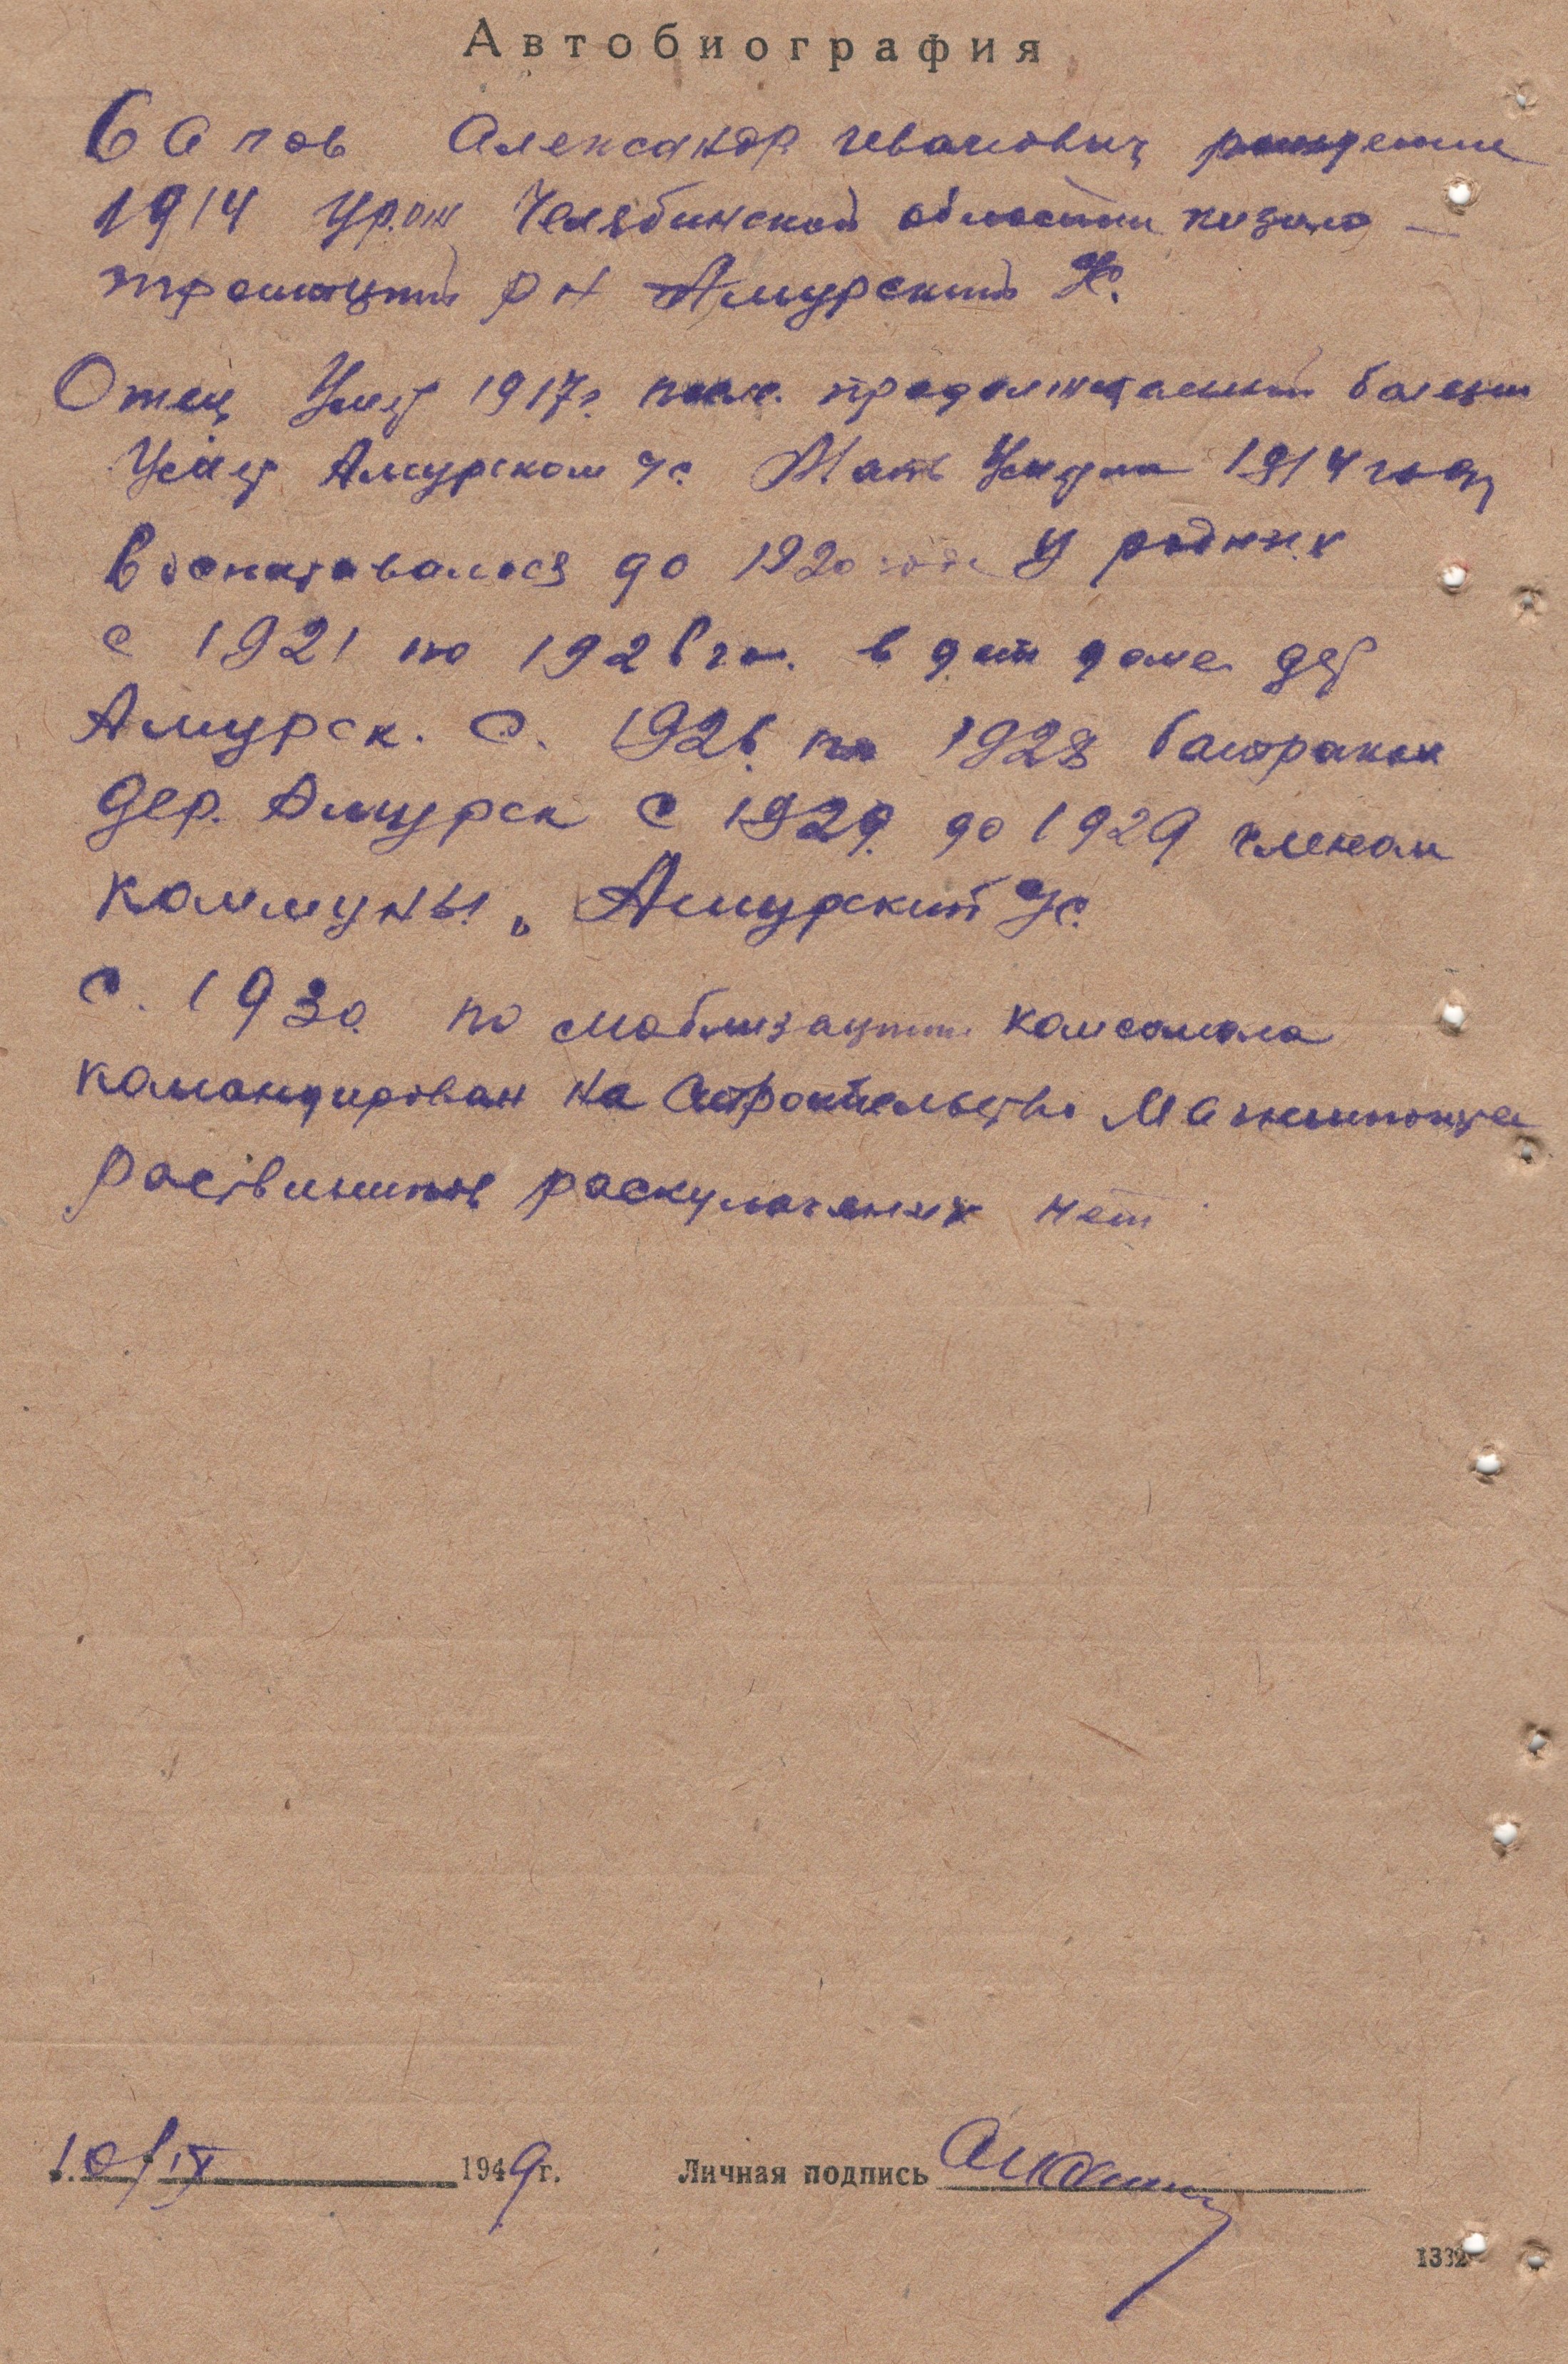 Автобиография
Сапов Александр Иванович рождения
1914 урож Челябинской области кизило –
троицкий р н Амурский ус.
Отец Умер 1917г. после продолжтельный болезни
Умер Амурском ус. Мать Умерла 1914 году
Воспитывался до 1920 года у родных
с 1921 по 1926 год. в дет доме дер
Амурск. С. 1926. по 1928 батраком
дер. Амурск С 1929. до 1929 членом
коммуны „Амурский ус.
С. 1930. по моблизации комсомола
командирован на Строительство Магнитки
раскулаченных нет
10/IX 1949г. Личная подпись
1332